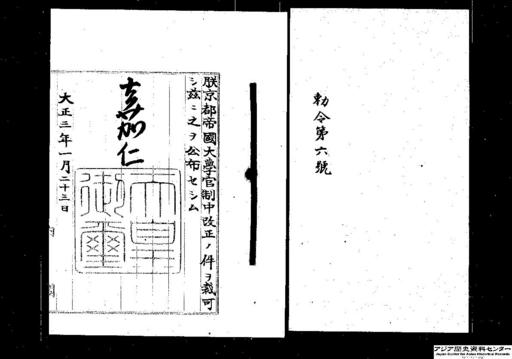 勅令第六號
朕京都帝國大學官制中改正ノ件ヲ裁可
シ茲ニ之ヲ公布セシム
嘉仁
天皇御璽
大正三年一月二十三日
内閣
アジア歴史資料センター
Japan Center for Asian Historical Records